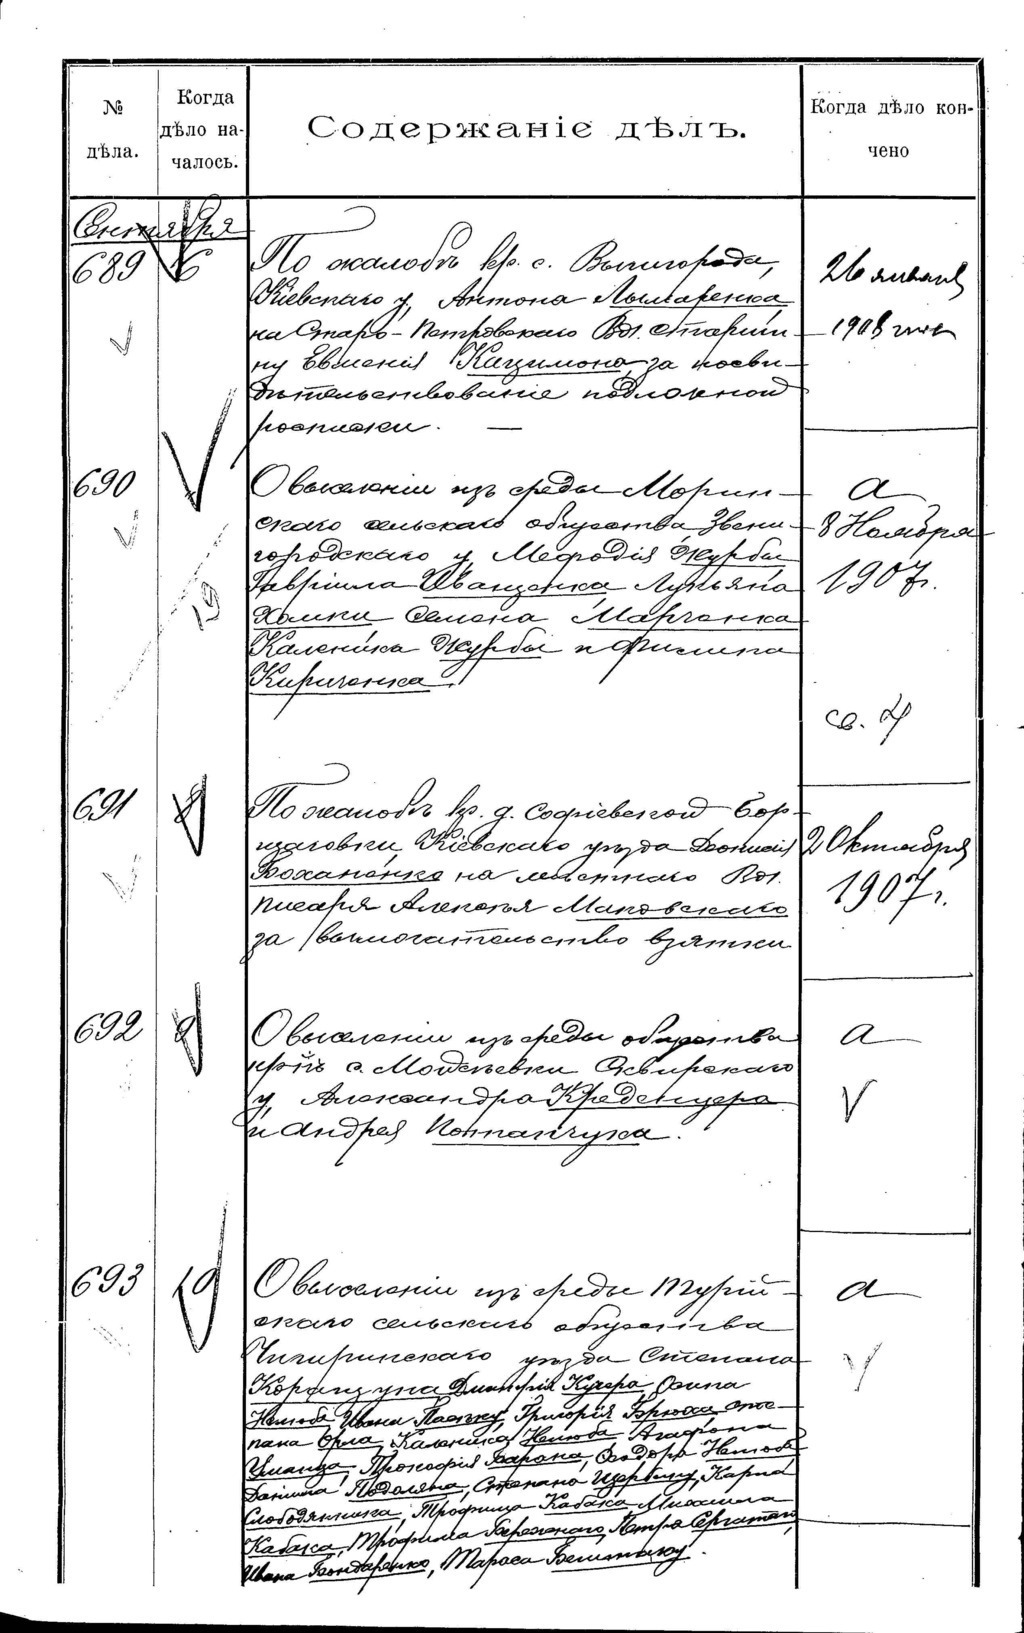 № дѣла.
Когда дѣло на-
чалось.
Содержаніе дѣлъ.
Когда дѣло кон-
чено
Сентября
689
6
По жалобѣ кр. с. Вышгорода,
Кіевскаго у, Антона Лымаренка
на Старо-Петровскаго Вол. старши-
ну Евменія Кацимона, за посви-
дѣтельствованіе подложной
росписки. —
26 января
1908 года
690
О выселеніи изъ среды Морин-
скаго сельскаго общества, Звени-
городскаго у, Мефодія Журбы
Гавріила Иващенка, Лукьяна
Хомки Семена Марченка
Каленика Журбы и Филипа
Кириченка.
а
8 Ноября
1907 г.
св. 4
19
691
8
По жалобѣ кр. д. Софіевской Бор-
щаговки, Кіевскаго уѣзда Леонтія
Боханенко на мѣстнаго Вол.
писаря Алексѣя Маковскаго
за вымогательство взятки
2 Октября
1907 г.
692
9
О выселеніи изъ среды общества
кр-нъ с. Мойсѣевки Сквирскаго
у, Александра Креденцера
и Андрея Потапчука.
а
693
10
О выселеніи изъ среды Турій-
скаго сельскаго общества
Чигиринскаго уѣзда Степана
Дмитрія Кучера, Осипа
Ивана Григорія Брюха, Сте-
пана Орла, Каленика Агафона
Уманца, Прокофія Барана, Ѳеодора
Даніила Подоляна, Степана Щербину, Карпа
Слободянника, Трофима Кабака, Михаила
Кабака, Трофима Бережнаго, Петра
Ивана Бондаренко, Тараса
а